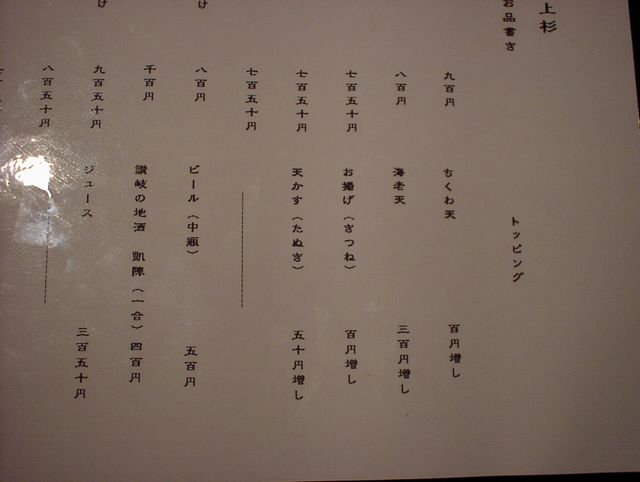 上杉
お品書き
トッピング
九百円
ちくわ天
百円増し
八百円
海老天
三百円増し
七百五十円
お揚げ（きつね）
百円増し
七百五十円
天かす（たぬき）
五十円増し
七百五十円
け
八百円
ビール（中瓶）
五百円
千百円
讃岐の地酒 凱陣（一合）四百円
け
九百五十円
ジュース
三百五十円
八百五十円